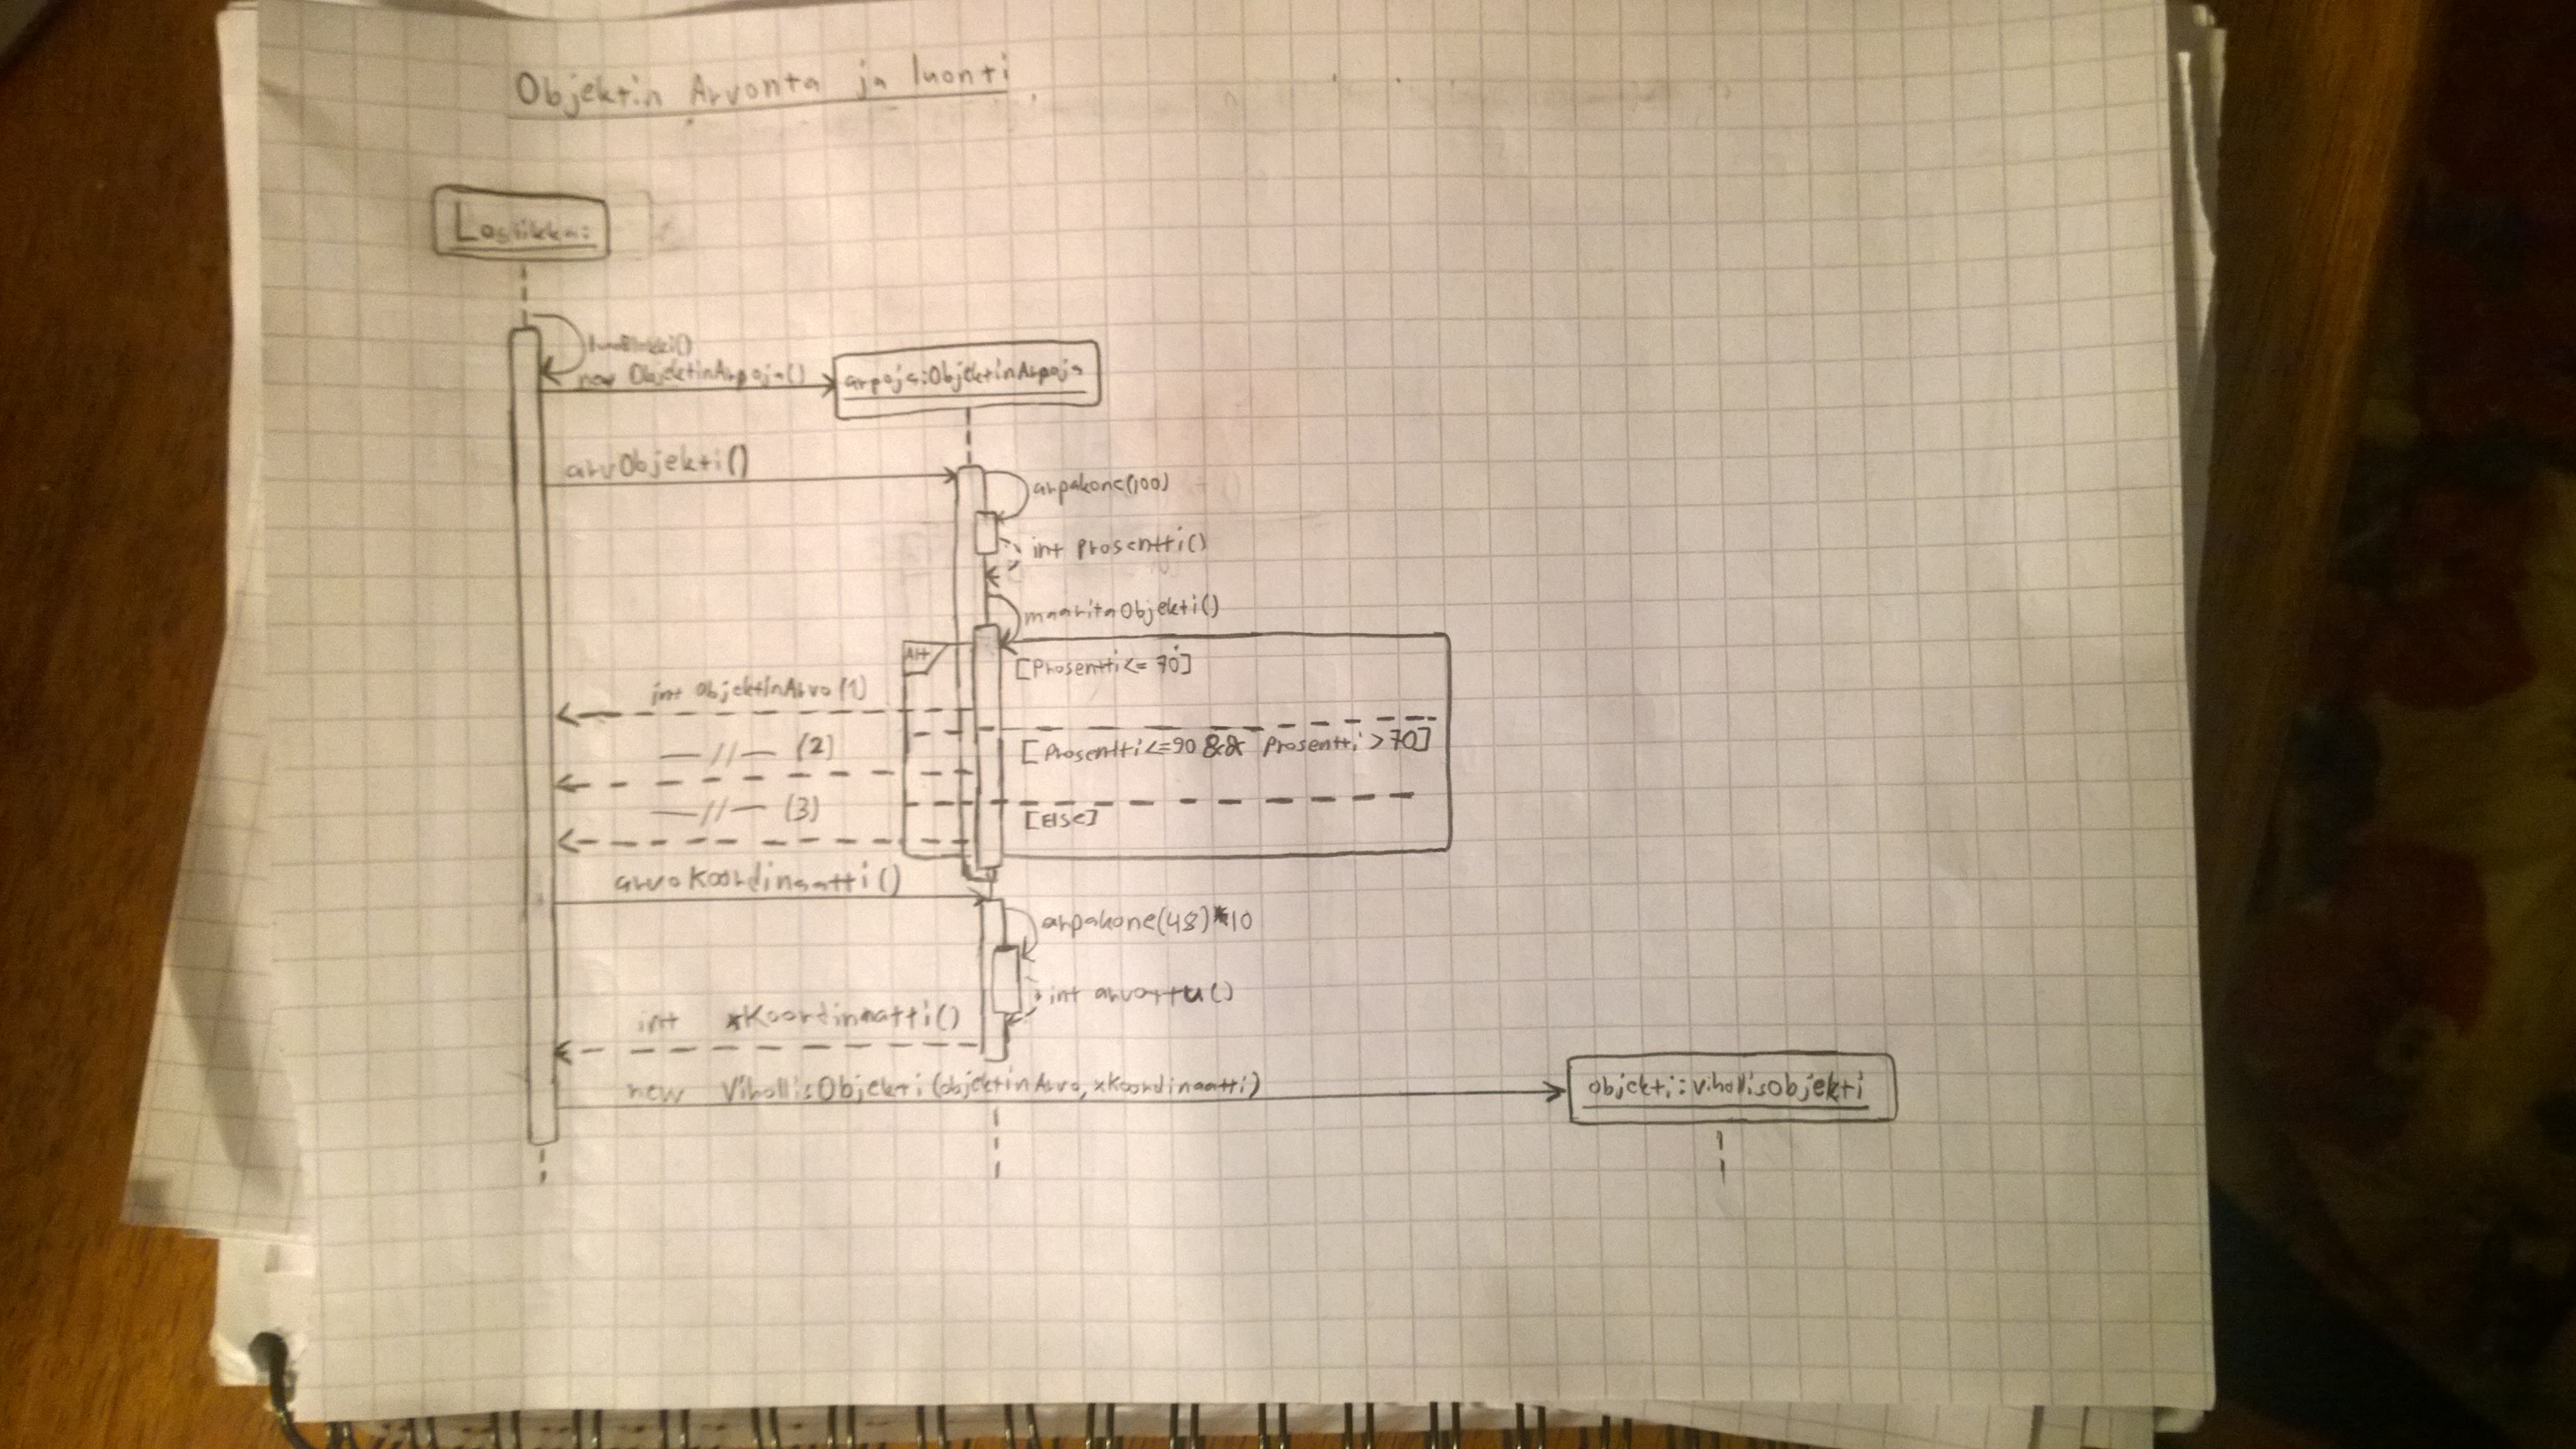 Objektin Arvonta ja luonti
Logiikka:
new ObjektinArpoja()
arpoja:ObjektinArpoja
arvObjekti()
arpakone(100)
int prosentti()
maaritaObjekti()
Alt
[Prosentti<= 70]
int objektinArvo(1)
[Prosentti<=90 && Prosentti >70]
—//— (2)
—//— (3)
[Else]
arvoKoordinaatti()
arpakone(48)*10
int arvottu()
int xKoordinaatti()
new VihollisObjekti(objektinArvo, xKoordinaatti)
objekti:VihollisObjekti